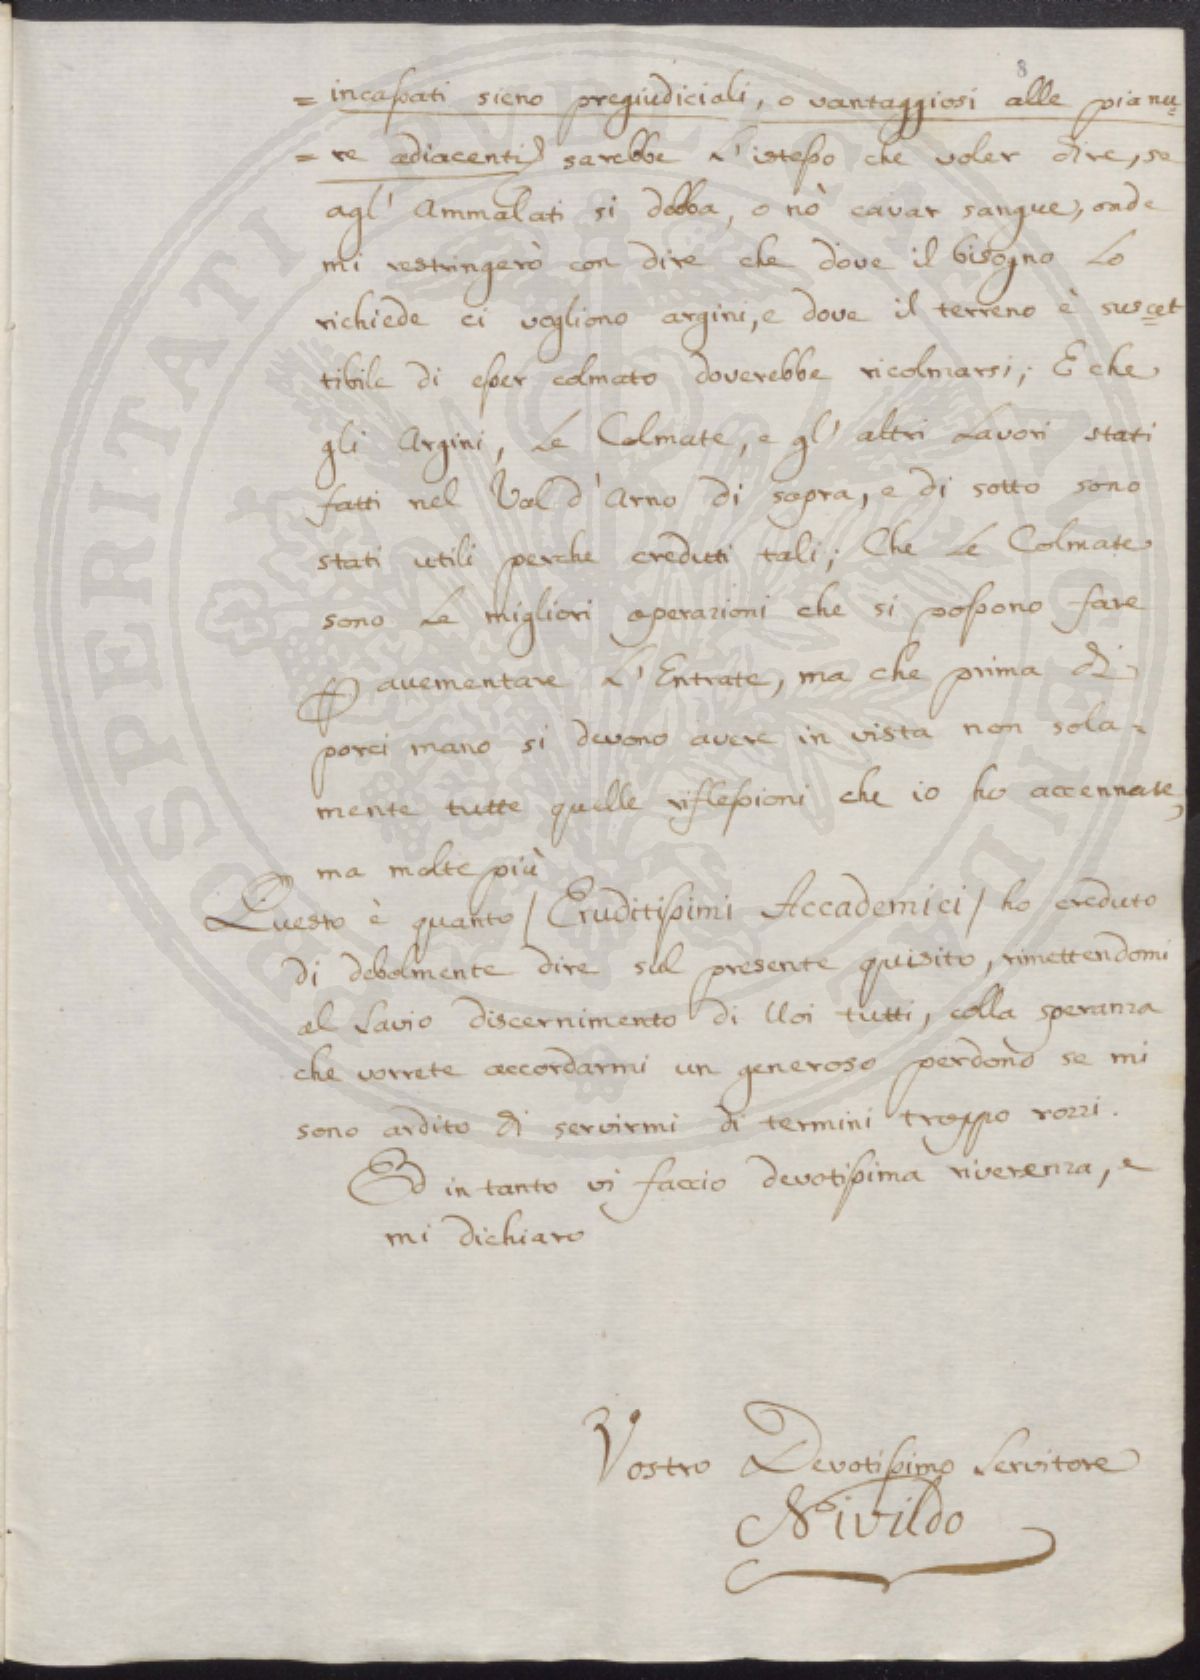 8
= incassati sieno pregiudiciali, o vantaggiosi alle pianu=
= re adiacenti) sarebbe L'istesso che voler dire, se
agl' Ammalati si debba, o nò cavar sangue, onde
mi restringerò con dire che dove il bisogno Lo
richiede ci vogliono argini, e dove il terreno è suscet
tibile di esser colmato doverebbe ricolmarsi; E che
gli Argini, Le Colmate, e gl' altri Lavori stati
fatti nel Val d'Arno di sopra, e di sotto sono
stati utili perche credutti tali; Che Le Colmate
sono Le migliori operazioni che si possono fare
P aumentare L'Entrate, ma che prima di
porci mano si devono avere in vista non sola=
mente tutte quelle riflessioni che io ho accennate,
ma molte più
Questo è quanto / Eruditissimi Accademici / ho creduto
di debolmente dire sul presente quisito, rimettendomi
al Savio discernimento di Voi tutti, colla speranza
che vorrete accordarmi un generoso perdono se mi
sono ardito di servirmi di termini troppo rozzi.
Ed in tanto vi faccio devotissima riverenza, e
mi dichiaro
Vostro Devotissimo Servitore
Nivildo
PROSPERITATI PUBLICAE AUGENDAE